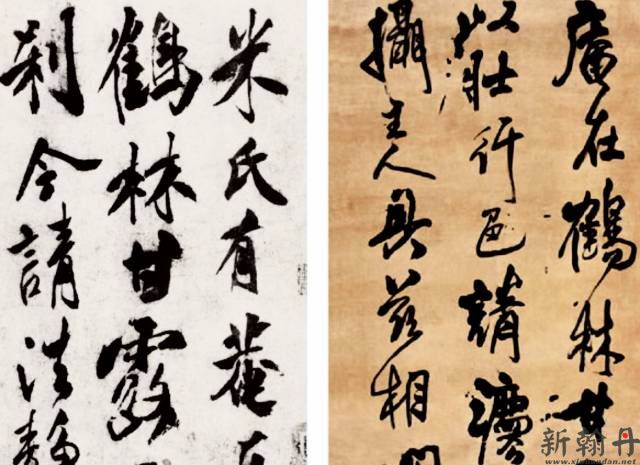 米氏有菴在
鶴林甘露
刹今請法
菴在鶴林甘
以壯行色請
攝主人具茲相
新翰丹
www.xinhandan.net